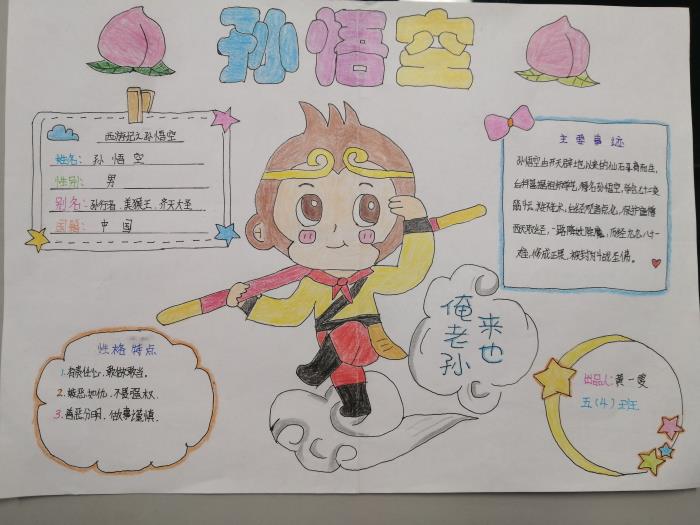 孙悟空
西游记之孙悟空
姓名：孙悟空
性别：男
别名：孙行者、美猴王、齐天大圣
国籍：中国
主要事迹
孙悟空由开天辟地以来的仙石孕育而生，
名孙悟空，学会七十二变
筋斗云，
西天取经，一路降妖除魔，历经九九八十一
难，修成正果，被封为斗战圣佛。
俺老孙
来也
性格特点
1.有责任心，敢做敢当。
2.嫉恶如仇，不畏强权。
3.善恶分明，做事谨慎。
出品人：黄一雯
五（4）班